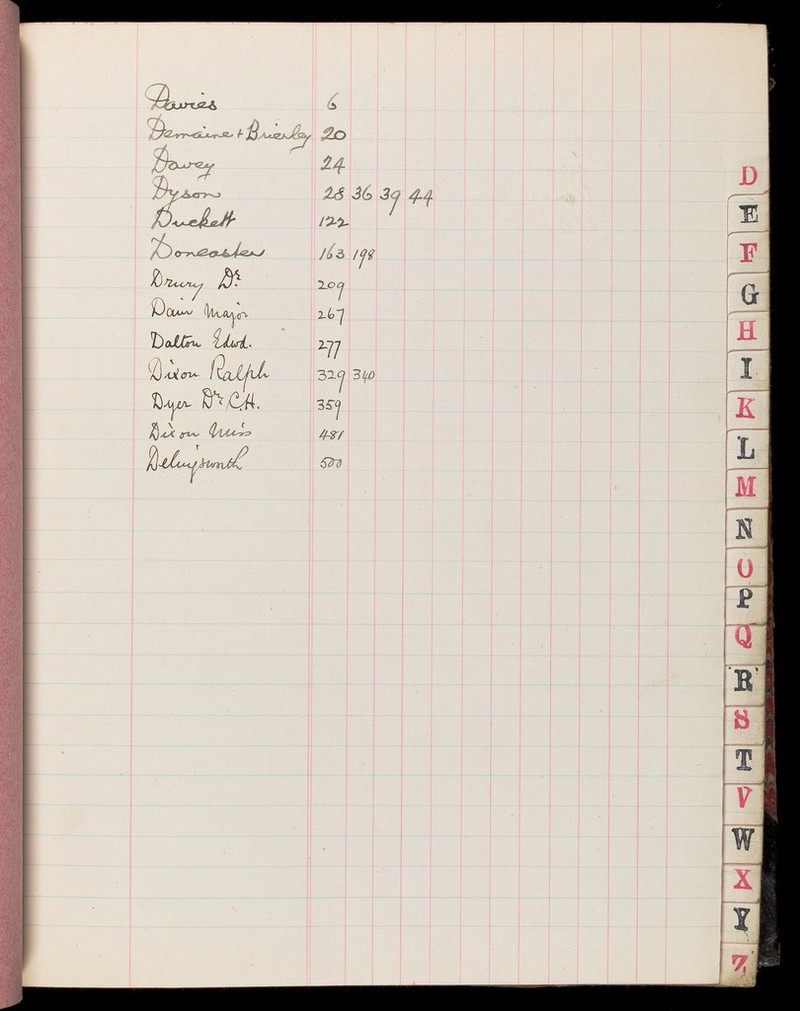 Davies 6
Demaine + Brierley 20
Davey 24
Dyson 28 36 39 44
Duckett 122
Doncaster 163 198
Drury Dr. 209
Dain Major 267
Dalton Edwd. 277
Dixon Ralph 329 340
Dyer Dr. C.H. 359
Dixon Miss 481
500
D
E
F
G
H
I
K
L
M
N
O
P
Q
R
S
T
V
W
X
Y
Z